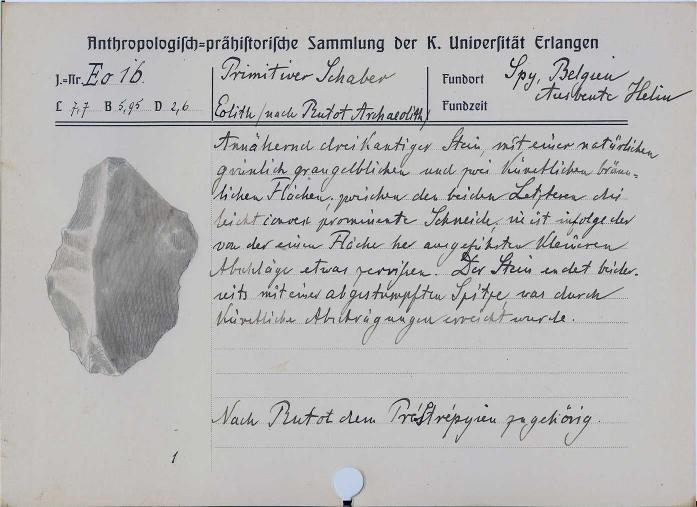 Anthropologisch=prähistorische Sammlung der K. Universität Erlangen
J.=Nr. Eo 16.
L 7,7 B 5,95 D 2,6
Primitiver Schaber
Eolith (nach Rutot Archaeolith)
Fundort Spy, Belgien
Ausbeute Helin
Fundzeit
Annähernd dreikantiger Stein, mit einer natürlichen
grünlich graugelblichen und zwei künstlichen bräun-
lichen Flächen; zwischen den beiden Letzteren die
leicht convex prominente Schneide, sie ist infolge der
von der einen Fläche her ausgeführten kleineren
Abschläge etwas zerrissen. Der Stein endet beider-
seits mit einer abgestumpften Spitze, was durch
künstliche Abschrägungen erreicht wurde.
Nach Rutot dem Prästrépyien zugehörig.
1